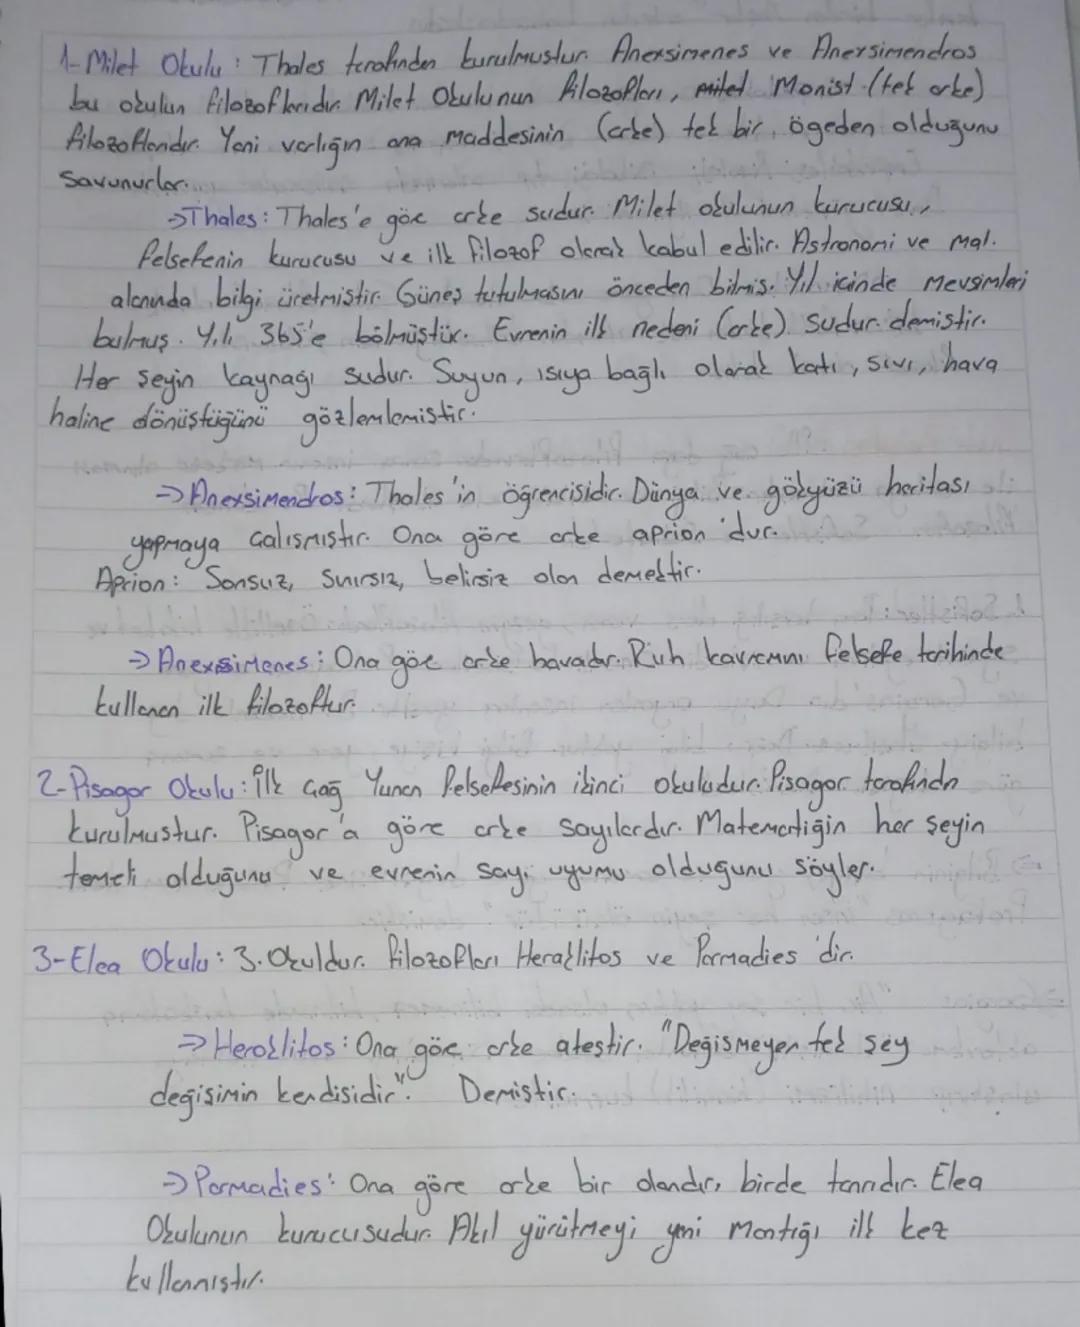 1- Milet Okulu : Thales tarafından kurulmuştur. Anexsimenes ve Anexsimendros
bu okulun filozoflarıdır. Milet Okulunun filozofları, Monist (tek arke)
filozoflarıdır. Yani varlığın ana maddesinin (arke) tek bir ögeden olduğunu
savunurlar.
→Thales : Thales'e göre arke sudur. Milet okulunun kurucusu,
felsefenin kurucusu ve ilk filozof olarak kabul edilir. Astronomi ve mat.
alanında bilgi üretmiştir. Güneş tutulmasını önceden bilmiş. Yıl içinde mevsimleri
bulmuş. Yılı 365'e bölmüştür. Evrenin ilk nedeni (arke) sudur demiştir.
Her şeyin kaynağı sudur. Suyun, ısıya bağlı olarak katı, sıvı, hava
haline dönüştüğünü gözlemlemiştir.
→Anexsimendros : Thales'in öğrencisidir. Dünya ve gökyüzü haritası
yapmaya çalışmıştır. Ona göre arke aprion'dur.
Aprion : Sonsuz, sınırsız, belirsiz olan demektir.
→Anexsimenes : Ona göre arke havadır. Ruh kavramını felsefe tarihinde
kullanan ilk filozoftur.
2- Pisagor Okulu : İlk Çağ Yunan felsefesinin ikinci okuludur. Pisagor tarafından
kurulmuştur. Pisagor'a göre arke sayılardır. Matematiğin her şeyin
temeli olduğunu ve evrenin sayı uyumu olduğunu söyler.
3- Elea Okulu : 3. Okuldur. filozofları Heraklitos ve Parmadies'dir.
→Heraklitos : Ona göre arke ateştir. "Değişmeyen tek şey
değişimin kendisidir". Demiştir.
→Parmadies : Ona göre arke bir olandır, birde tanrıdır. Elea
Okulunun kurucusudur. Akıl yürütmeyi yani Mantığı ilk kez
kullanmıştır.